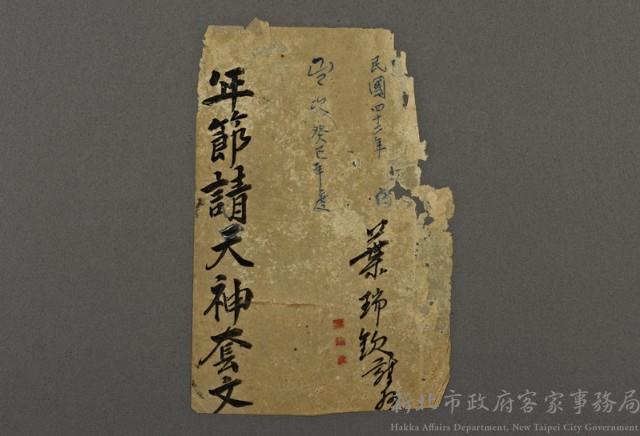 民國四十二年
葉瑞欽
歲次癸巳年
年節請天神套文
新北市政府客家事務局
Hakka Affairs Department, New Taipei City Government